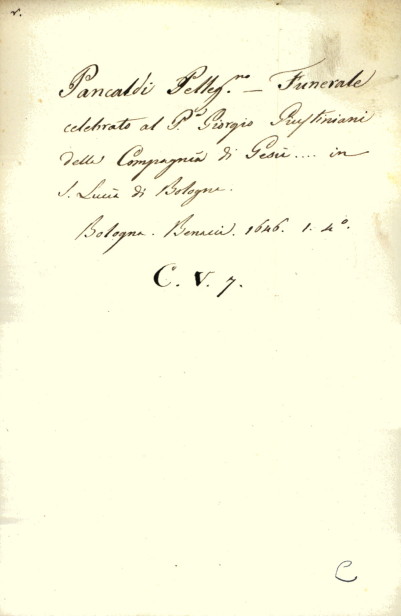 r.
Pancaldi Pelleg.no — Funerale
celebrato al P.e Giorgio Giustiniani
della Compagnia di Gesù .... in
S. Lucia di Bologna.
Bologna. Benacci. 1646. 1. 4º.
C. V. 7.
C